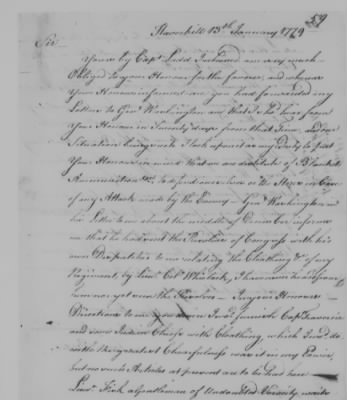 59
Haverhill 13th January 1779
Sir
Yours by Capt. Ladd I received am very much
Obliged to your Honour for the favour, and whereas
Your Honour informed me you had forwarded my
Letter to Genl. Washington and that I should hear from
Your Honour in Twenty days from that Time, and our
Situation being such I look upon it as my Duty to put
Your Honour in mind that we are destitute of Blankets
Ammunition &c. to defend ourselves or the Stores in Case
of any Attack made by the Enemy — Genl. Washington in
his Letter to me about the middle of December informs
me that he had sent the Resolve of Congress with his
own Dispatches to me relating the Cloathing &c. of my
Regiment, by Lieut. Colo. Wheelock,
have not yet seen the Resolve — Your Honours
Directions to me to furnish Capt. Traversie
and some Indian Chiefs with Cloathing, which I would do
with the greatest Chearfulness was it in my Power,
but no such Articles at present are to be had here
Lieut. Fisk a Gentleman of Undoubted Veracity waits